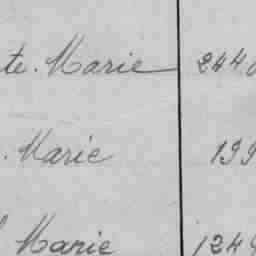 te. Marie 244
. Marie 199
Marie 1249